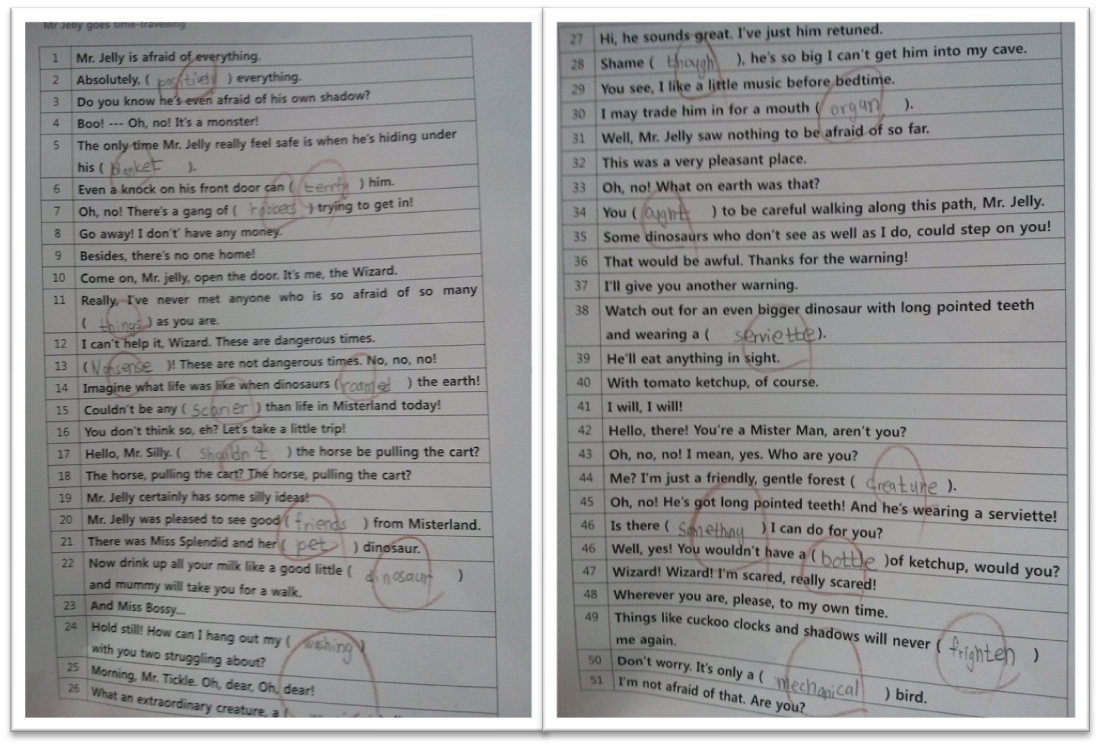 Mr Jelly goes time-travelling
1 Mr. Jelly is afraid of everything.
2 Absolutely, ( positively ) everything.
3 Do you know he's even afraid of his own shadow?
4 Boo! --- Oh, no! It's a monster!
5 The only time Mr. Jelly really feel safe is when he's hiding under
his ( blanket ).
6 Even a knock on his front door can ( terrify ) him.
7 Oh, no! There's a gang of ( robbers ) trying to get in!
8 Go away! I don't' have any money.
9 Besides, there's no one home!
10 Come on, Mr. jelly, open the door. It's me, the Wizard.
11 Really, I've never met anyone who is so afraid of so many
( things ) as you are.
12 I can't help it, Wizard. These are dangerous times.
13 ( Nonsense )! These are not dangerous times. No, no, no!
14 Imagine what life was like when dinosaurs ( roamed ) the earth!
15 Couldn't be any ( scarier ) than life in Misterland today!
16 You don't think so, eh? Let's take a little trip!
17 Hello, Mr. Silly. ( Shouldn't ) the horse be pulling the cart?
18 The horse, pulling the cart? The horse, pulling the cart?
19 Mr. Jelly certainly has some silly ideas!
20 Mr. Jelly was pleased to see good ( friends ) from Misterland.
21 There was Miss Splendid and her ( pet ) dinosaur.
22 Now drink up all your milk like a good little ( dinosaur )
and mummy will take you for a walk.
23 And Miss Bossy...
24 Hold still! How can I hang out my ( washing )
with you two struggling about?
25 Morning, Mr. Tickle. Oh, dear, Oh, dear!
26 What an extraordinary creature, a (
27 Hi, he sounds great. I've just him retuned.
28 Shame ( though ), he's so big I can't get him into my cave.
29 You see, I like a little music before bedtime.
30 I may trade him in for a mouth ( organ ).
31 Well, Mr. Jelly saw nothing to be afraid of so far.
32 This was a very pleasant place.
33 Oh, no! What on earth was that?
34 You ( ought ) to be careful walking along this path, Mr. Jelly.
35 Some dinosaurs who don't see as well as I do, could step on you!
36 That would be awful. Thanks for the warning!
37 I'll give you another warning.
38 Watch out for an even bigger dinosaur with long pointed teeth
and wearing a ( serviette ).
39 He'll eat anything in sight.
40 With tomato ketchup, of course.
41 I will, I will!
42 Hello, there! You're a Mister Man, aren't you?
43 Oh, no, no! I mean, yes. Who are you?
44 Me? I'm just a friendly, gentle forest ( creature ).
45 Oh, no! He's got long pointed teeth! And he's wearing a serviette!
46 Is there ( something ) I can do for you?
46 Well, yes! You wouldn't have a ( bottle )of ketchup, would you?
47 Wizard! Wizard! I'm scared, really scared!
48 Wherever you are, please, to my own time.
49 Things like cuckoo clocks and shadows will never ( frighten )
me again.
50 Don't worry. It's only a ( mechanical ) bird.
51 I'm not afraid of that. Are you?